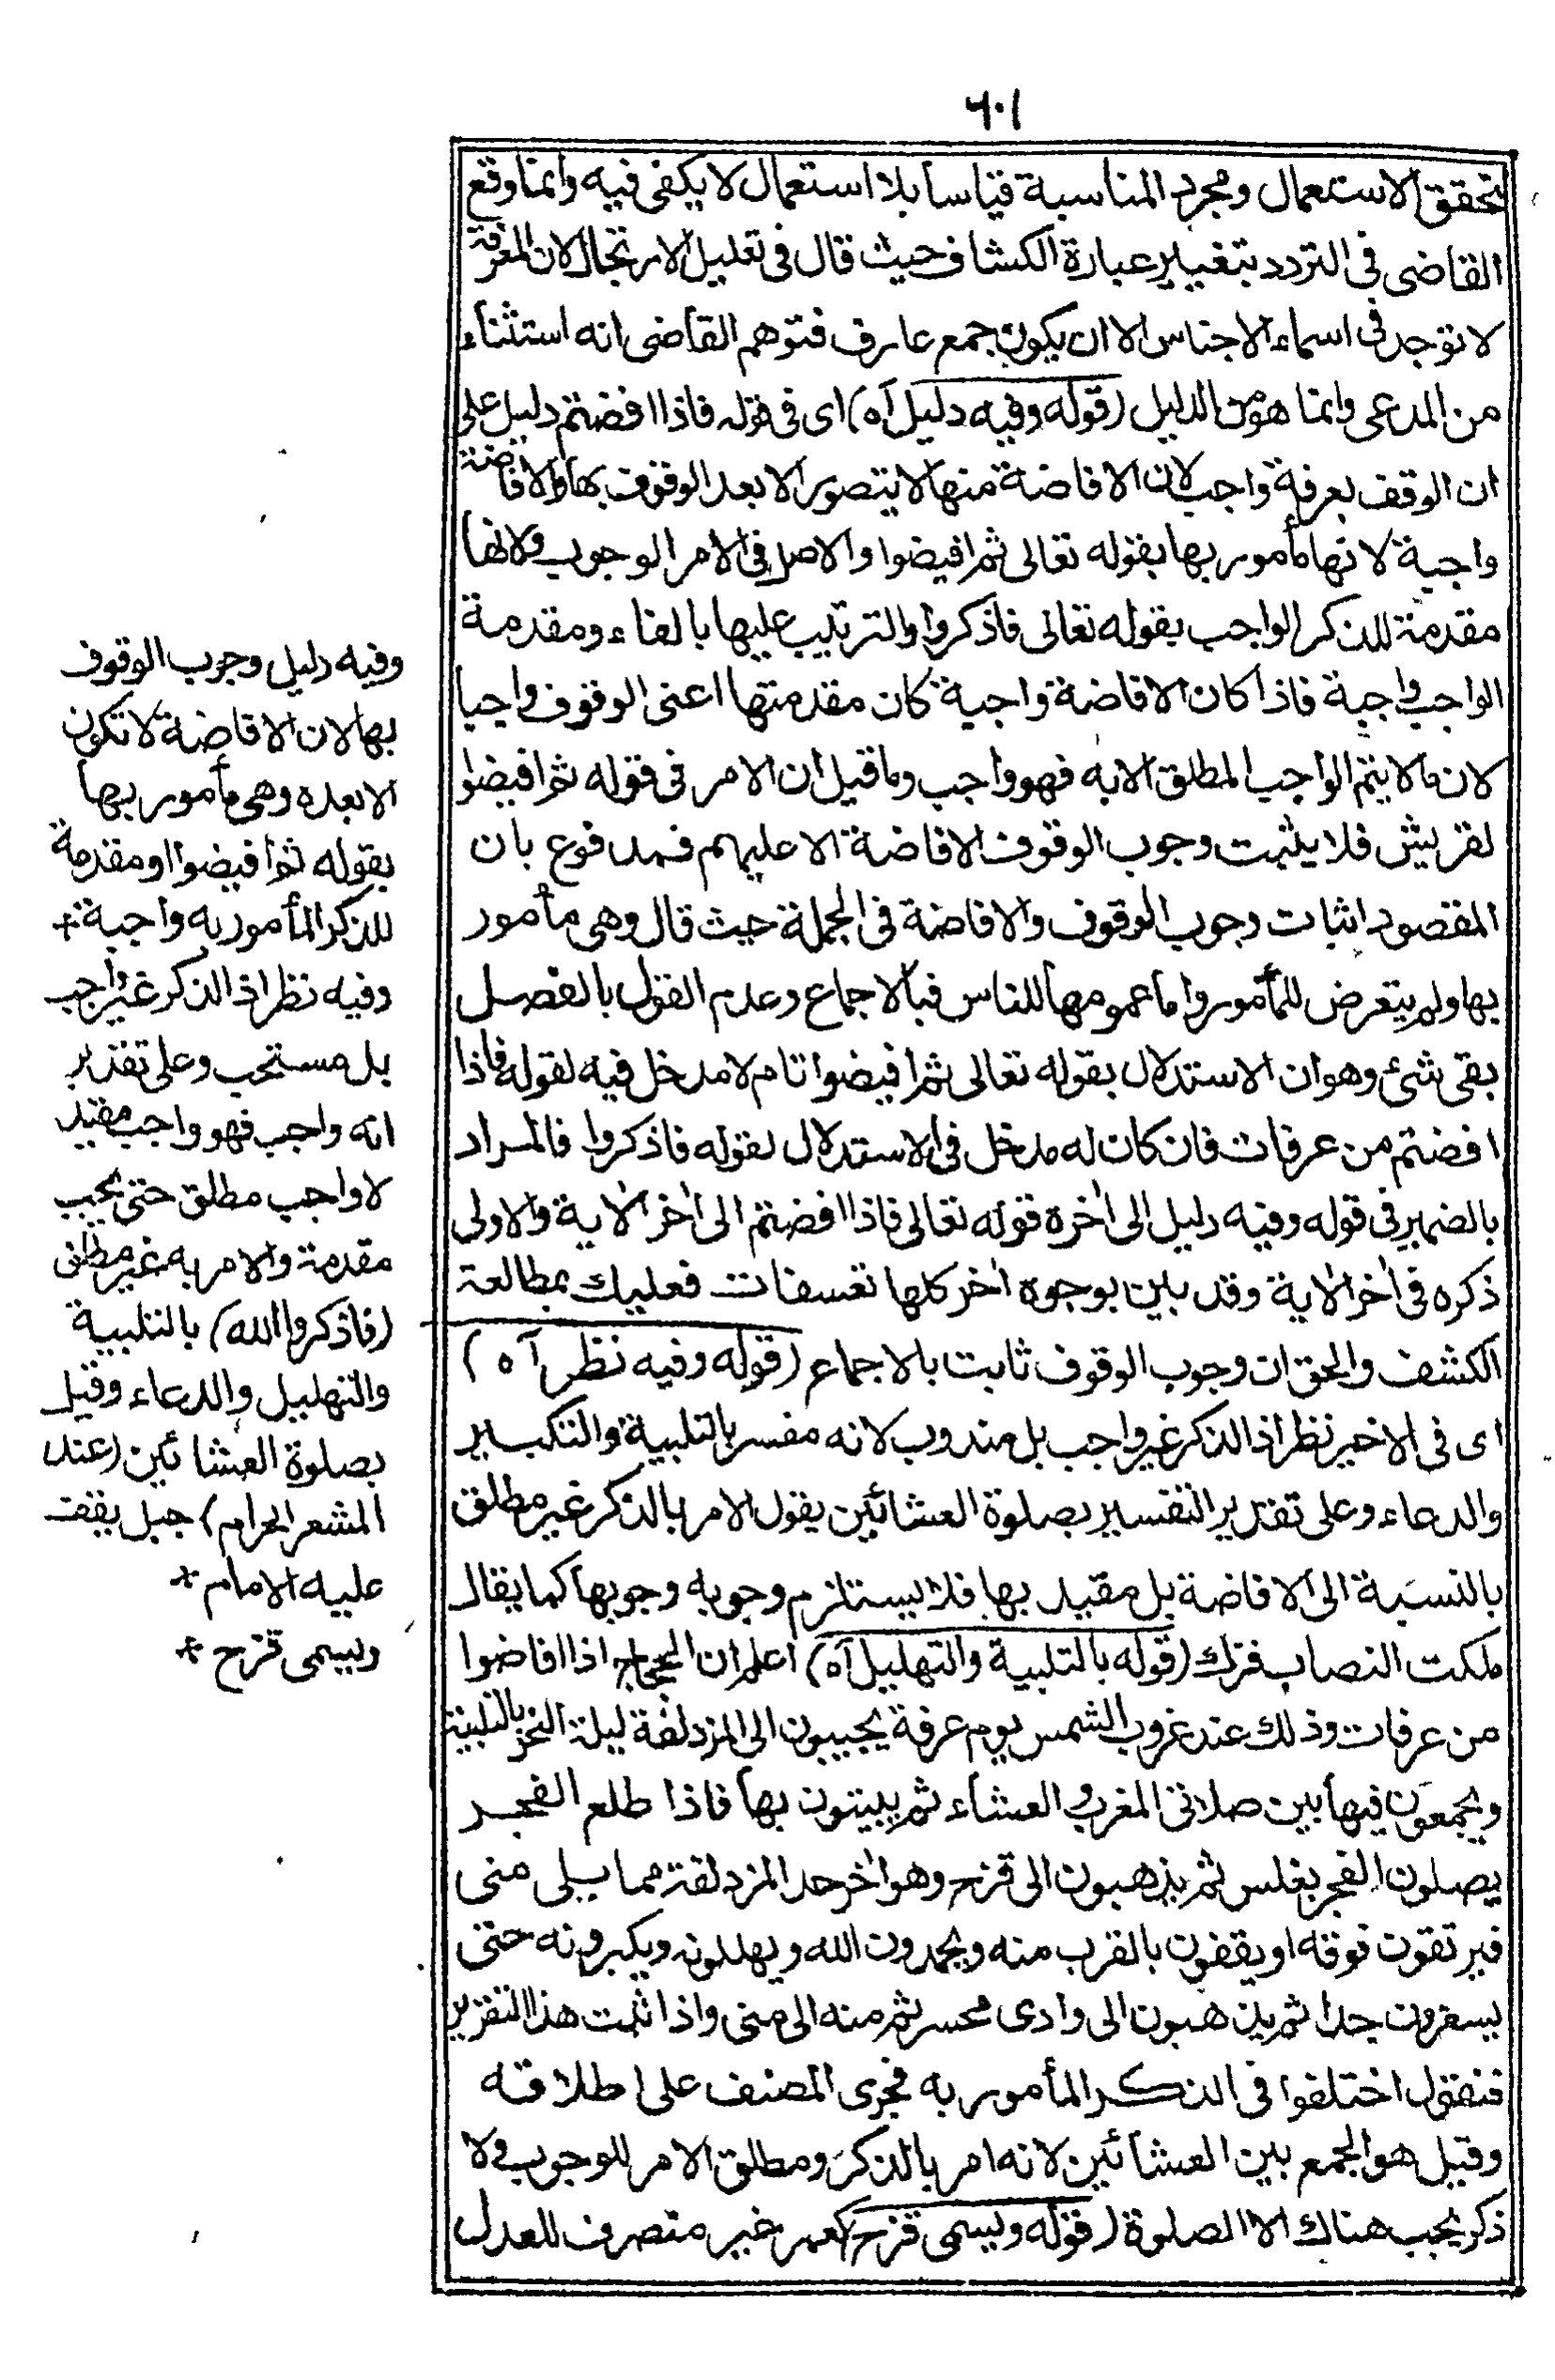 ٦٠١
تحقق الاستعمال ومجرد المناسبة قياسا بلا استعمال لا يكفى فيه وانما وقع
القاضى فى التردد بتغيير عبارة الكشاف حيث قال فى تعليل الارتجال لان المعرفة
لا توجد فى اسماء الاجناس الا ان يكون جمع عارف فتوهم القاضى انه استثناء
من المدعى وانما هو من الدليل (قوله وفيه دليل آه) اى فى قوله فاذا افضتم دليل على
ان الوقف بعرفة واجب لان الافاضة منها لا يتصور الا بعد الوقوف بها والافاضة
واجبة لانها مأمور بها بقوله تعالى ثم افيضوا والاصل فى الامر الوجوب ولانها
مقدمة للذكر الواجب بقوله تعالى فاذكروا والترتيب عليها بالفاء ومقدمة
الواجب واجبة فاذا كان الافاضة واجبة كان مقدمتها اعنى الوقوف واجبا
لان ما لا يتم الواجب المطلق الا به فهو واجب وما قيل ان الامر فى قوله ثم افيضوا
لقريش فلا يثبت وجوب الوقوف الافاضة الا عليهم فمدفوع بان
المقصود اثبات وجوب الوقوف والافاضة فى الجملة حيث قال وهى مأمور
بها ولم يتعرض للمأمور واما عمومها للناس فبالاجماع وعدم القول بالفصل
بقى شئ وهو ان الاستدلال بقوله تعالى ثم افيضوا تام لا مدخل فيه لقوله فاذا
افضتم من عرفات فان كان له مدخل فى الاستدلال لقوله فاذكروا فالمراد
بالضمير فى قوله وفيه دليل الى اخره قوله تعالى فاذا افضتم الى اخر الاية والاولى
ذكره فى اخر الاية وقد بين بوجوه اخر كلها تعسفات فعليك بمطالعة
الكشف والحق ان وجوب الوقوف ثابت بالاجماع (قوله وفيه نظر آه)
اى فى الاخير نظر اذ الذكر غير واجب بل مندوب لانه مفسر بالتلبية والتكبير
والدعاء وعلى تقدير التفسير بصلوة العشائين يقول الامر بالذكر غير مطلق
بالنسبة الى الافاضة بل مقيد بها فلا يستلزم وجوبه وجوبها كما يقال
ملكت النصاب فزك (قوله بالتلبية والتهليل آه) اعلم ان الحجاج اذا افاضوا
من عرفات وذلك عند غروب الشمس يوم عرفة يجيبون الى المزدلفة ليلة النحر بالتلبية
ويجمعون فيها بين صلاتى المغرب والعشاء ثم يبيتون بها فاذا طلع الفجر
يصلون الفجر بغلس ثم يذهبون الى قزح وهو اخر حد المزدلفة مما يلى منى
فيرتقون فوقه او يقفون بالقرب منه ويحمدون الله ويهللونه ويكبرونه حتى
يسفرون جدا ثم يذهبون الى وادى محسر ثم منه الى منى واذا ثبت هذا التقرير
فنقول اختلفوا فى الذكر المأمور به فجرى المصنف على اطلاقه
وقيل هو الجمع بين العشائين لانه امر بالذكر ومطلق الامر للوجوب ولا
ذكر يجب هناك الا الصلوة (قوله ويسمى قزح) كعمر خبر منصرف للعدل
وفيه دليل وجوب الوقوف
بها لان الافاضة لا تكون
الا بعده وهى مأمور بها
بقوله ثم افيضوا او مقدمة
للذكر المأمور به واجبة +
وفيه نظر اذ الذكر غير واجب
بل مستحب وعلى تقدير
انه واجب فهو واجب مقيد
لا واجب مطلق حتى يجب
مقدمة والامر به غير مطلق
(فاذكروا الله) بالتلبية
والتهليل والدعاء وقيل
بصلوة العشائين (عند
المشعر الحرام) جبل يقف
عليه الامام *
ويسمى قزح *